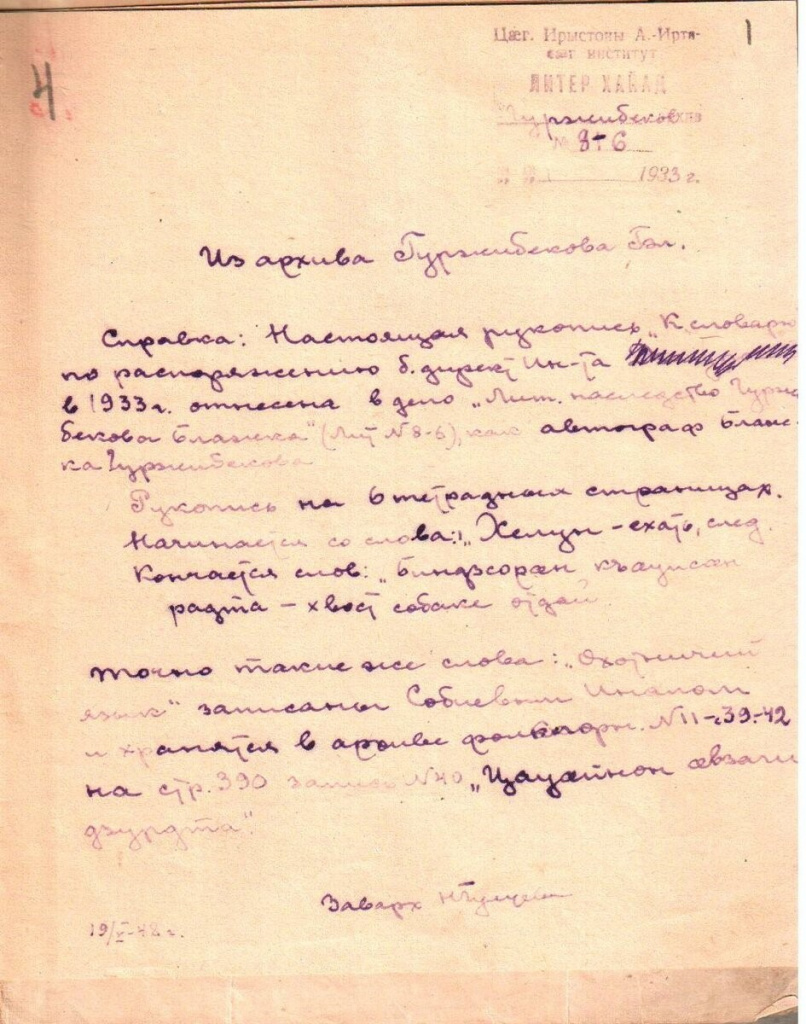 1
4
Цӕг. Ирыстоны А.-Иртӕ-
сӕг институт
ЛИТЕР ХАЙАД
Гуржибеков
№ 8-6
1933 г.
Из архива Гуржибекова Бл.
Справка: Настоящая рукопись „К словарю
по распоряжению б. директ Ин-та
в 1933 г. отнесена в дело „Лит. наследство Гуржи-
бекова Блашка" (Лит N 8-6), как автограф Блаш-
ка Гуржибекова
Рукопись на 6 тетрадных страницах.
Начинается со слова: „Хелцун - ехать, след.
Кончается слов: „Биндзоран къауисан
радта - хвост собаке отдай
Точно такие же слова: „Охотничий
язык" записаны Собиевым Иналом
и хранятся в архиве фольклорн. N 11-39-42
на стр. 390 запись N 40 „Цауӕйнон ӕвзаги
дзурдта".
Заварх
19/V-48 г.